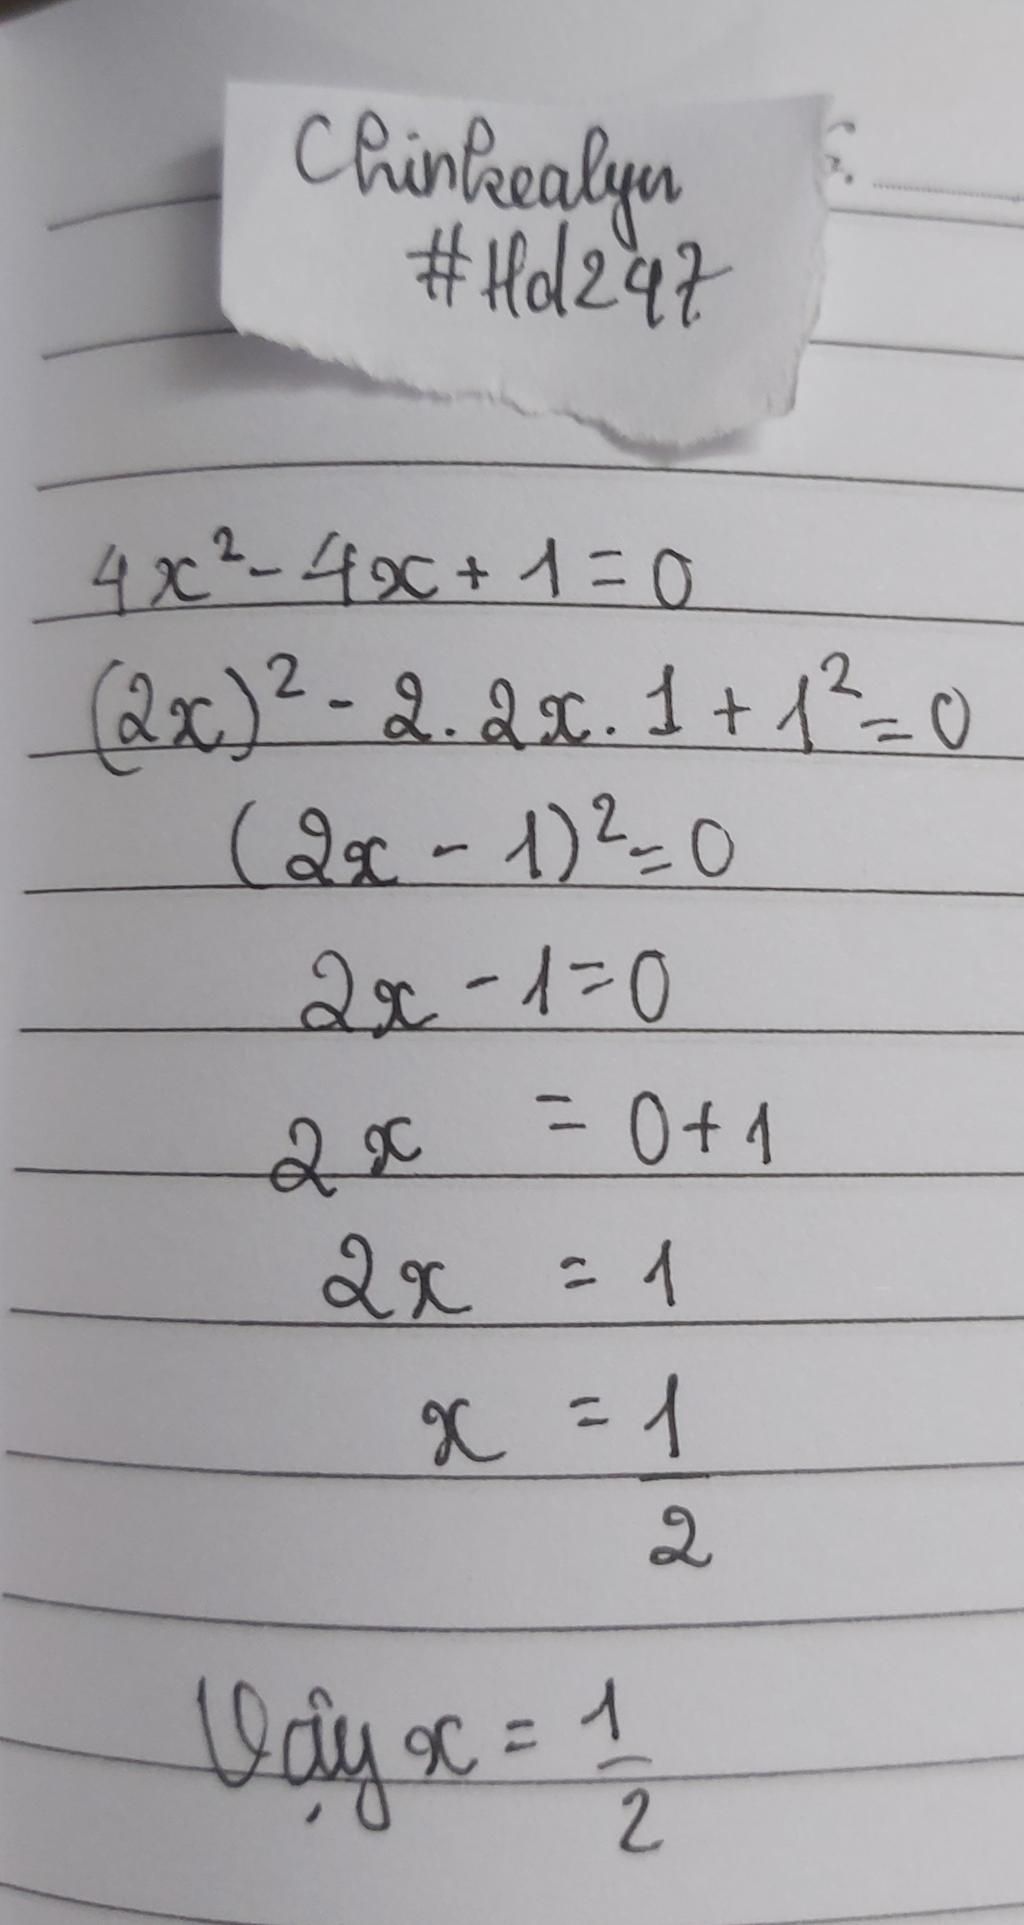 Chinkealyn
#Hd247
4x² - 4x + 1 = 0
(2x)² - 2. 2x. 1 + 1² = 0
(2x - 1)² = 0
2x - 1 = 0
2x = 0 + 1
2x = 1
x = 1/2
Vậy x = 1/2